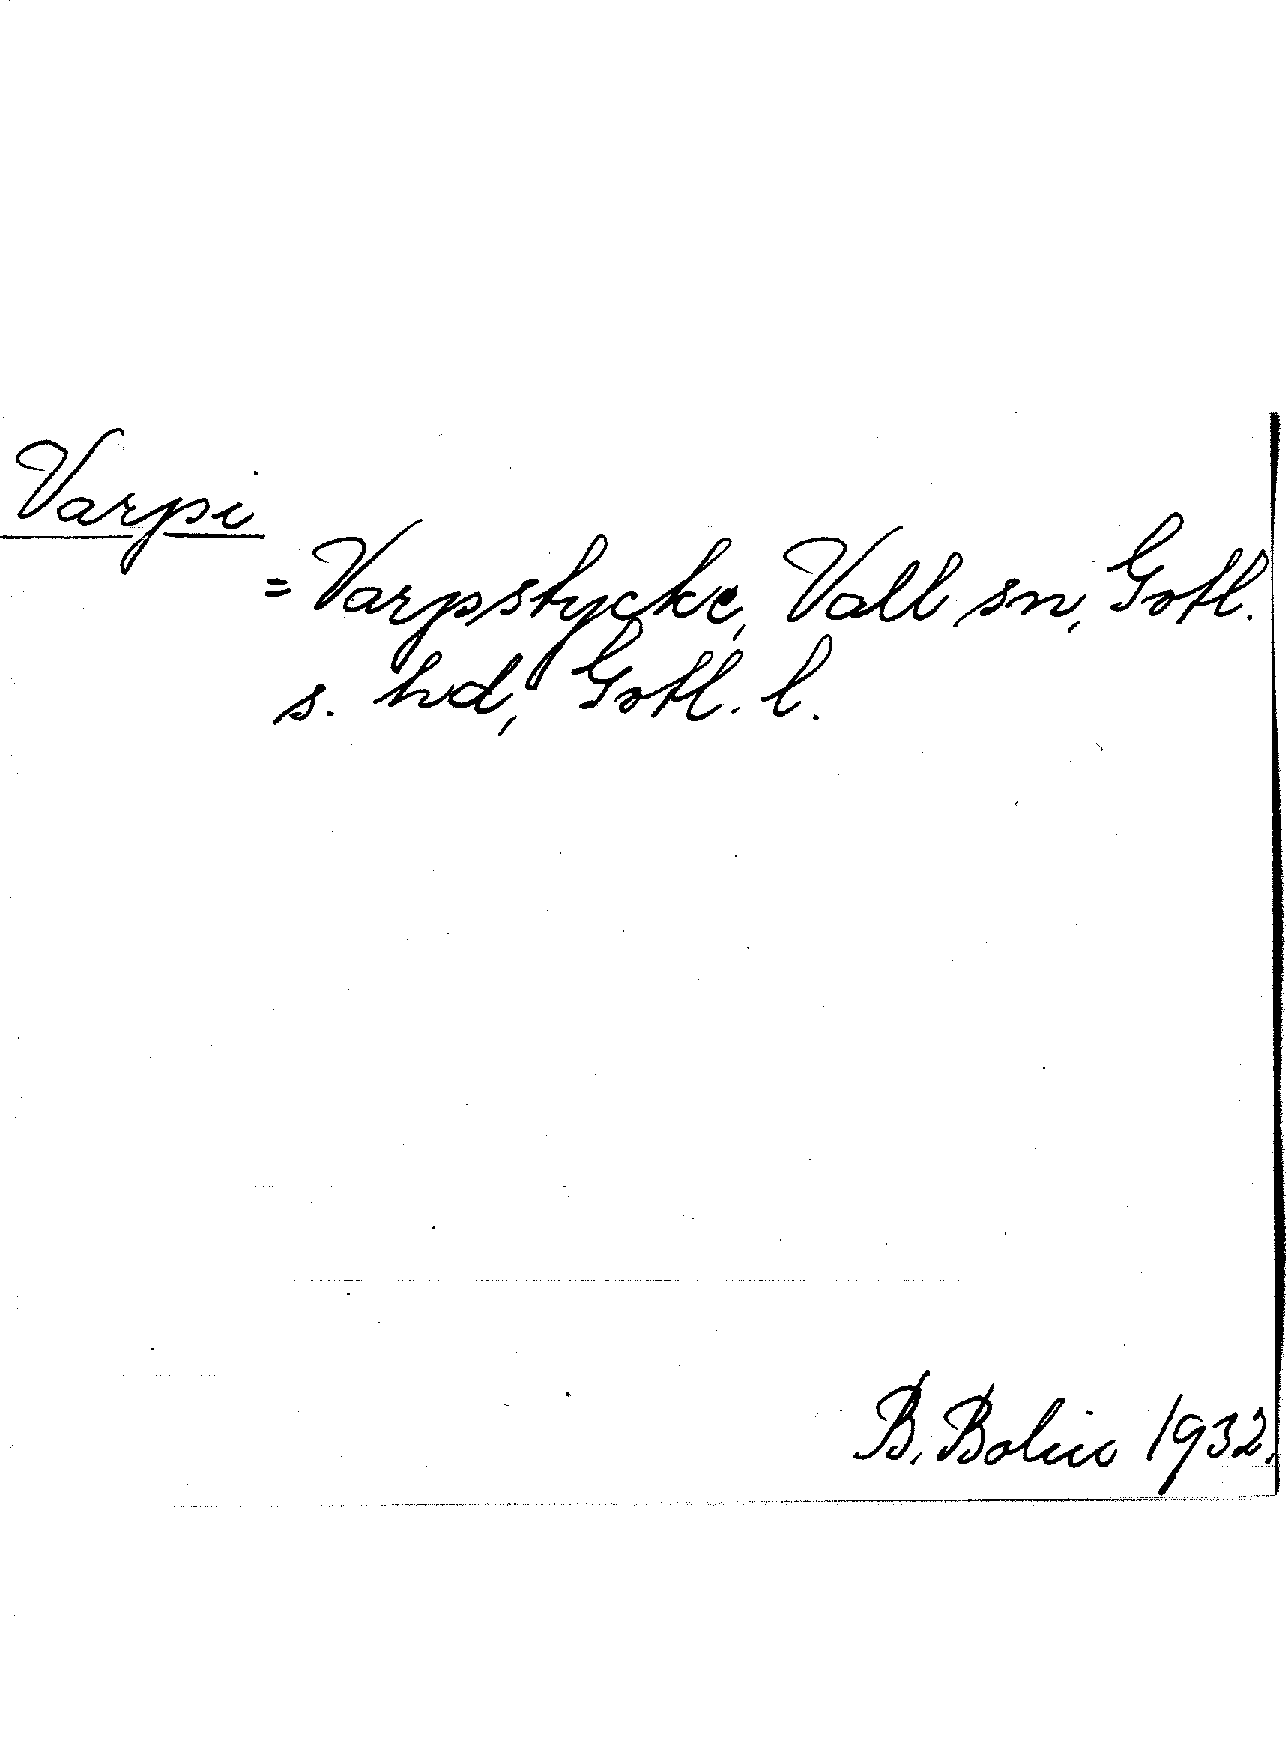 Varpi
= Varpstycke, Vall sn, Gotl.
s. hd, Gotl. l.
B. Bolin 1932.